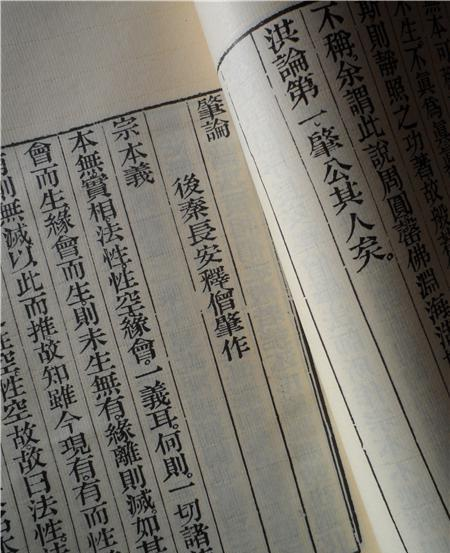 無本可
不生不眞為眞
斯則靜照之功著故般若
不稱。余謂此說周圓罄佛淵海浩
洪論第一肇公其人矣。
肇論
後秦長安釋僧肇作
宗本義
本無實相法性性空緣會。一義耳。何則。一切諸
會而生緣會而生則未生無有。緣離則滅。如其
有則無滅以此而推故知雖今現有。有而性
性空。性空故故曰法性。法